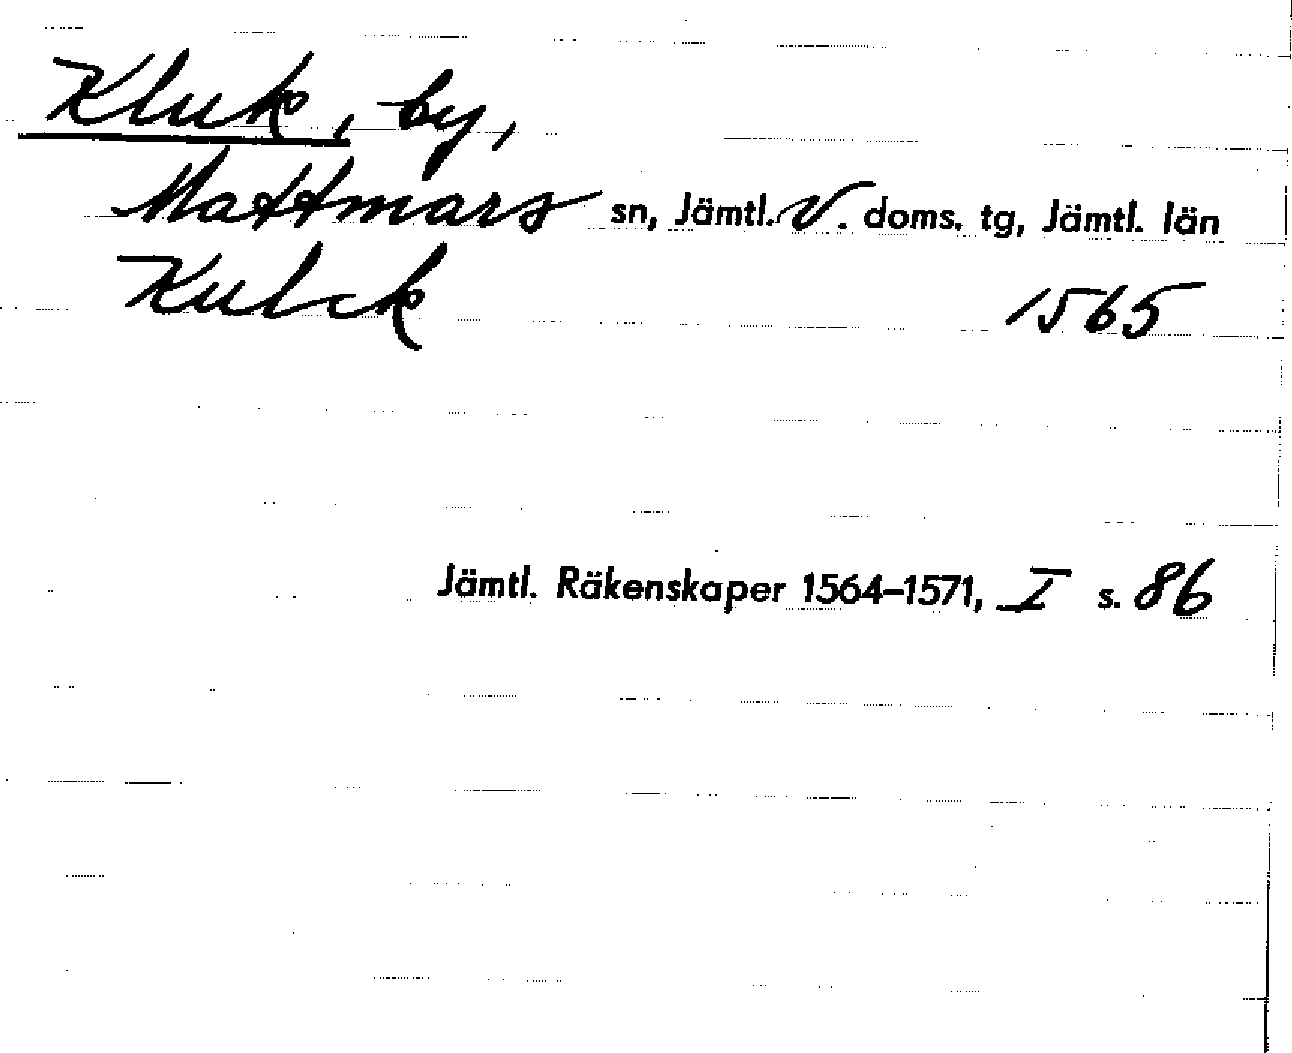 Kluk, by,
Mattmars sn, Jämtl. V. doms. tg, Jämtl. län
Kulck 1565
Jämtl. Räkenskaper 1564–1571, I s. 86